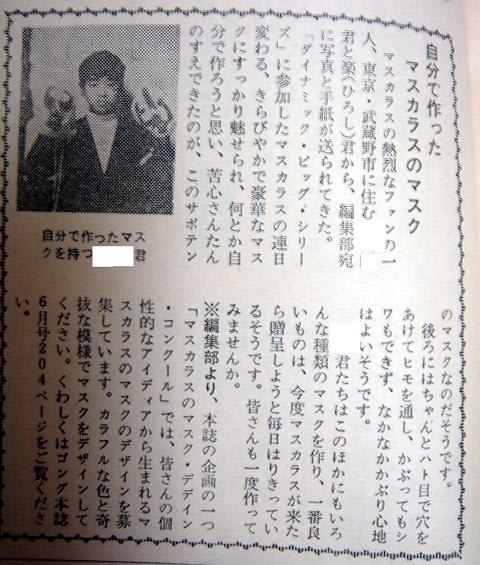 自分で作った
マスカラスのマスク
マスカラスの熱烈なファンの一
人、東京・武蔵野市に住む
君と楽(ひろし)君から、編集部宛
に写真と手紙が送られてきた。
「ダイナミック・ビッグ・シリー
ズ」に参加したマスカラスの連日
変わる、きらびやかで豪華なマス
クにすっかり魅せられ、何とか自
分で作ろうと思い、苦心さんたん
のすえできたのが、このサボテン
自分で作ったマス
クを持つ 君
のマスクなのだそうです。
後ろにはちゃんとハト目で穴を
あけてヒモを通し、かぶってもシ
ワもできず、なかなかかぶり心地
はよいそうです。
君たちはこのほかにもいろ
んな種類のマスクを作り、一番良
いものは、今度マスカラスが来た
ら贈呈しようと毎日はりきってい
るそうです。皆さんも一度作って
みませんか。
※編集部より、本誌の企画の一つ
「マスカラスのマスク・デデイン
・コンクール」では、皆さんの個
性的なアイディアから生まれるマ
スカラスのマスクのデザインを募
集しています。カラフルな色と奇
抜な模様でマスクをデザインして
ください。くわしくはゴング本誌
6月号204ページをご覧くださ
い。